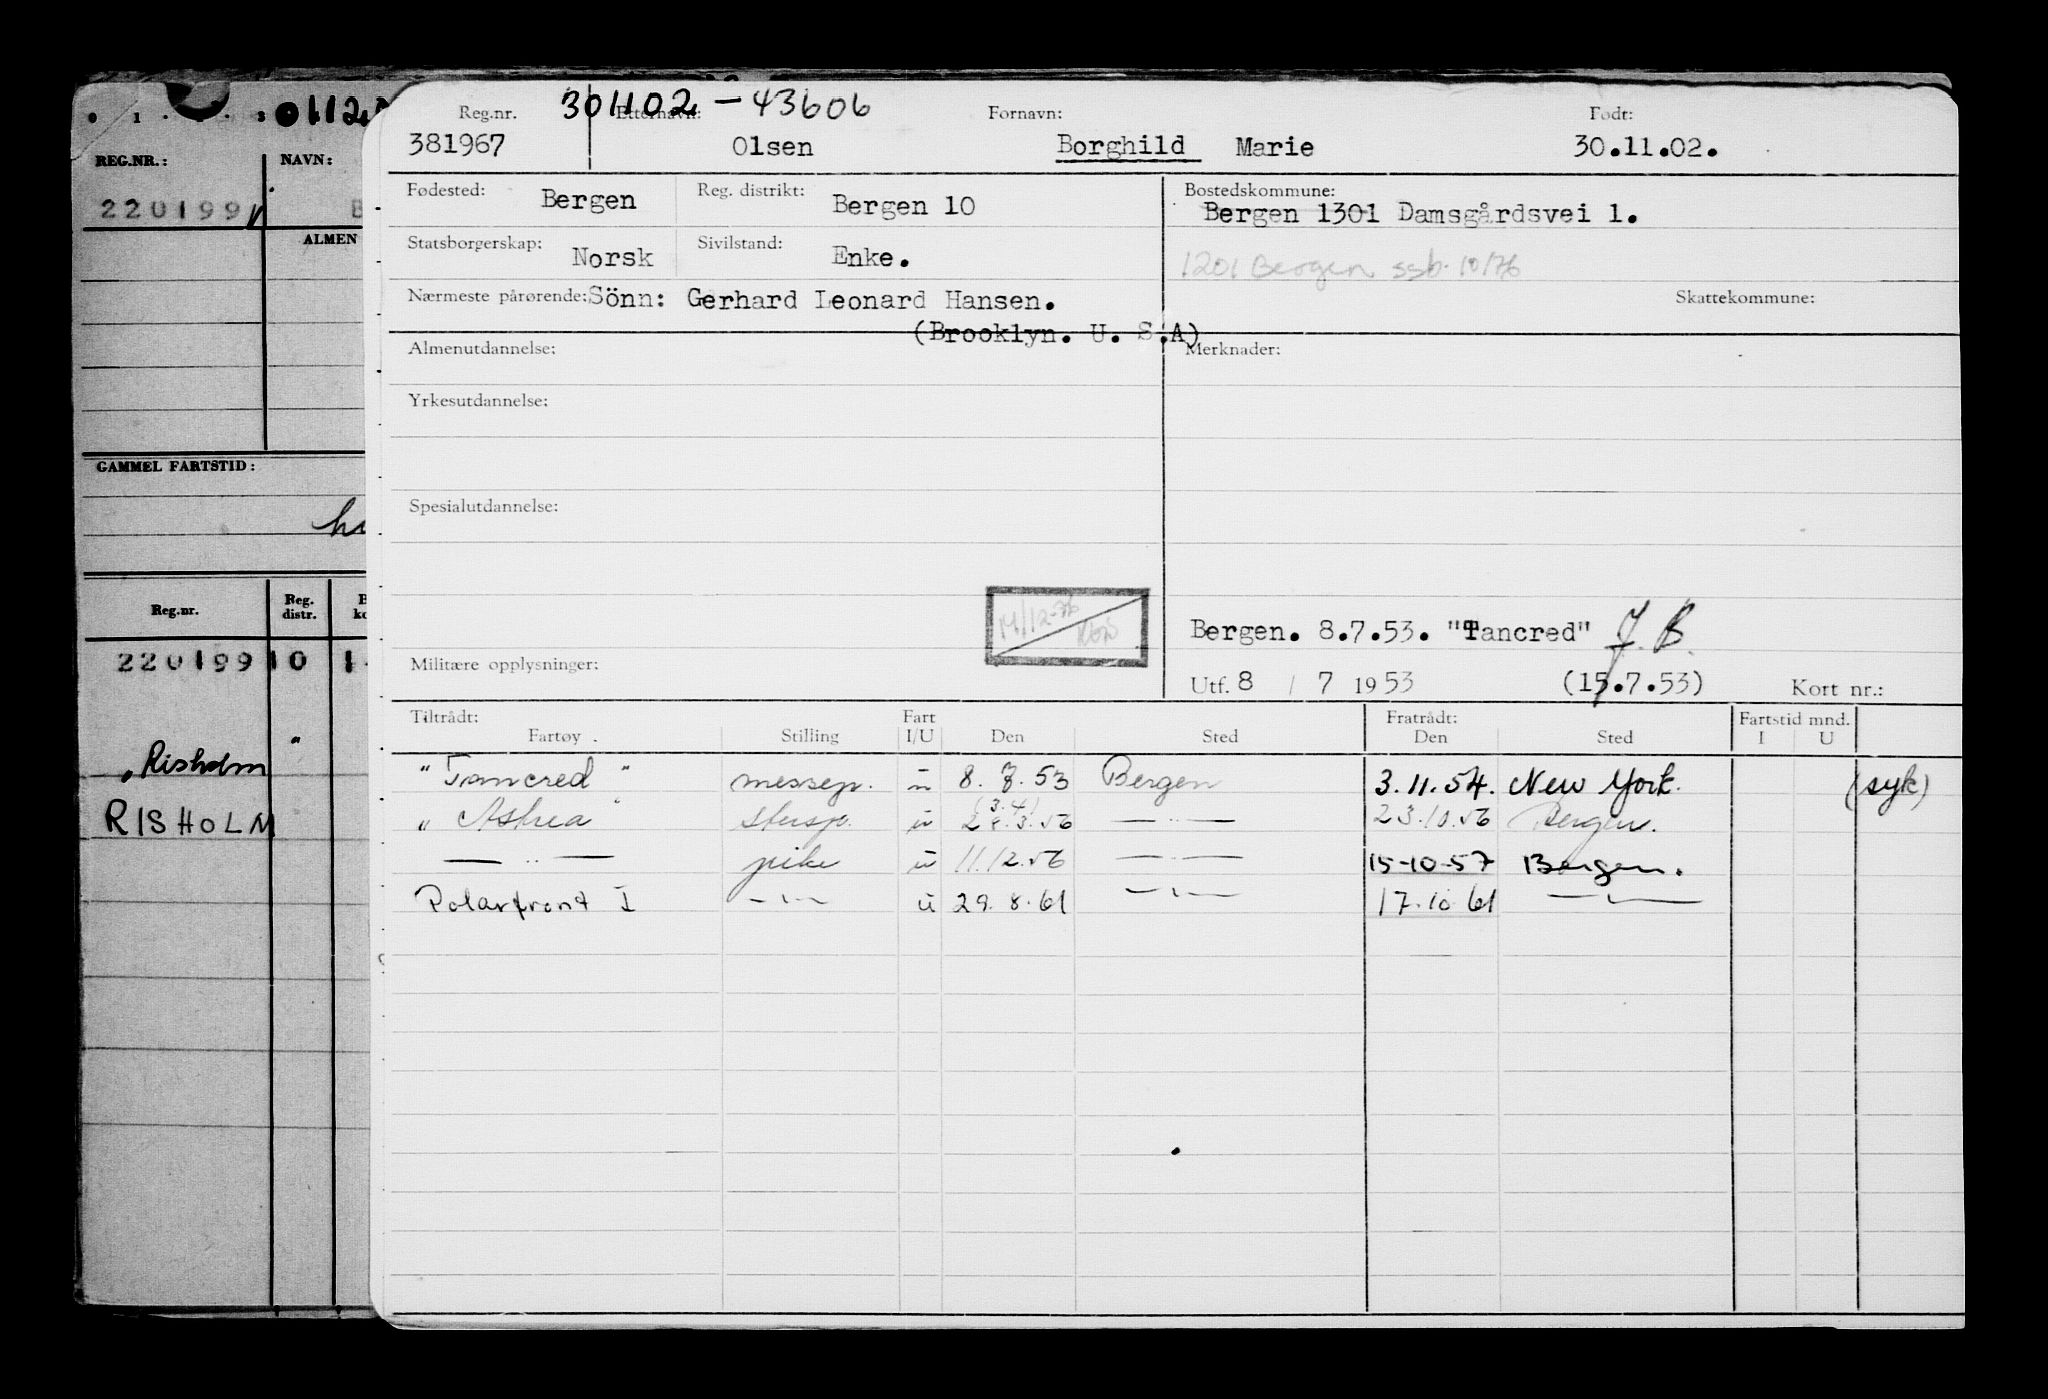 0112
REG.NR.:
NAVN:
220199
ALMEN
GAMMEL FARTSTID:
Reg.nr.
Reg. distr.
220199 10
"Risholm "
RISHOLM
301102 - 43606
Reg.nr. Etternavn: Fornavn: Født:
381967 Olsen Borghild Marie 30.11.02.
Fødested: Bergen Reg. distrikt: Bergen 10 Bostedskommune:
Bergen 1301 Damsgårdsvei 1.
Statsborgerskap: Norsk Sivilstand: Enke.
1201 Bergen ssb. 10/76
Nærmeste pårørende: Sönn: Gerhard Leonard Hansen. Skattekommune:
(Brooklyn. U. S.A)
Almenutdannelse: Merknader:
Yrkesutdannelse:
Spesialutdannelse:
Bergen. 8.7.53. "Tancred" J. B.
Militære opplysninger:
Utf. 8 / 7 1953 (15.7.53) Kort nr.:
Tiltrådt: Fart Fratrådt: Fartstid mnd.
Fartøy Stilling I/U Den Sted Den Sted I U
"Tancred" messep. u 8. 7. 53 Bergen 3.11.54. New York. (syk)
(3.4)
"Astrea" u 28.3.56 — " — 23.10.56 Bergen.
— " — pike u 11.12.56 — " — 15-10-57 Bergen.
Polarfront I — " — u 29. 8. 61 — " — 17.10.61 — " —